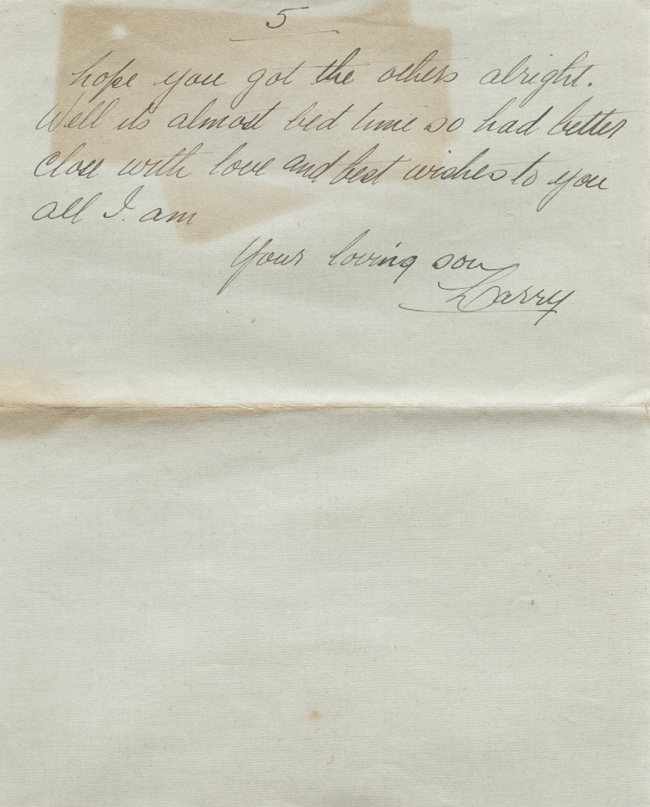 5
hope you got the others alright.
Well its almost bed time so had better
close with love and best wishes to you
all I am
Your loving son
Larry